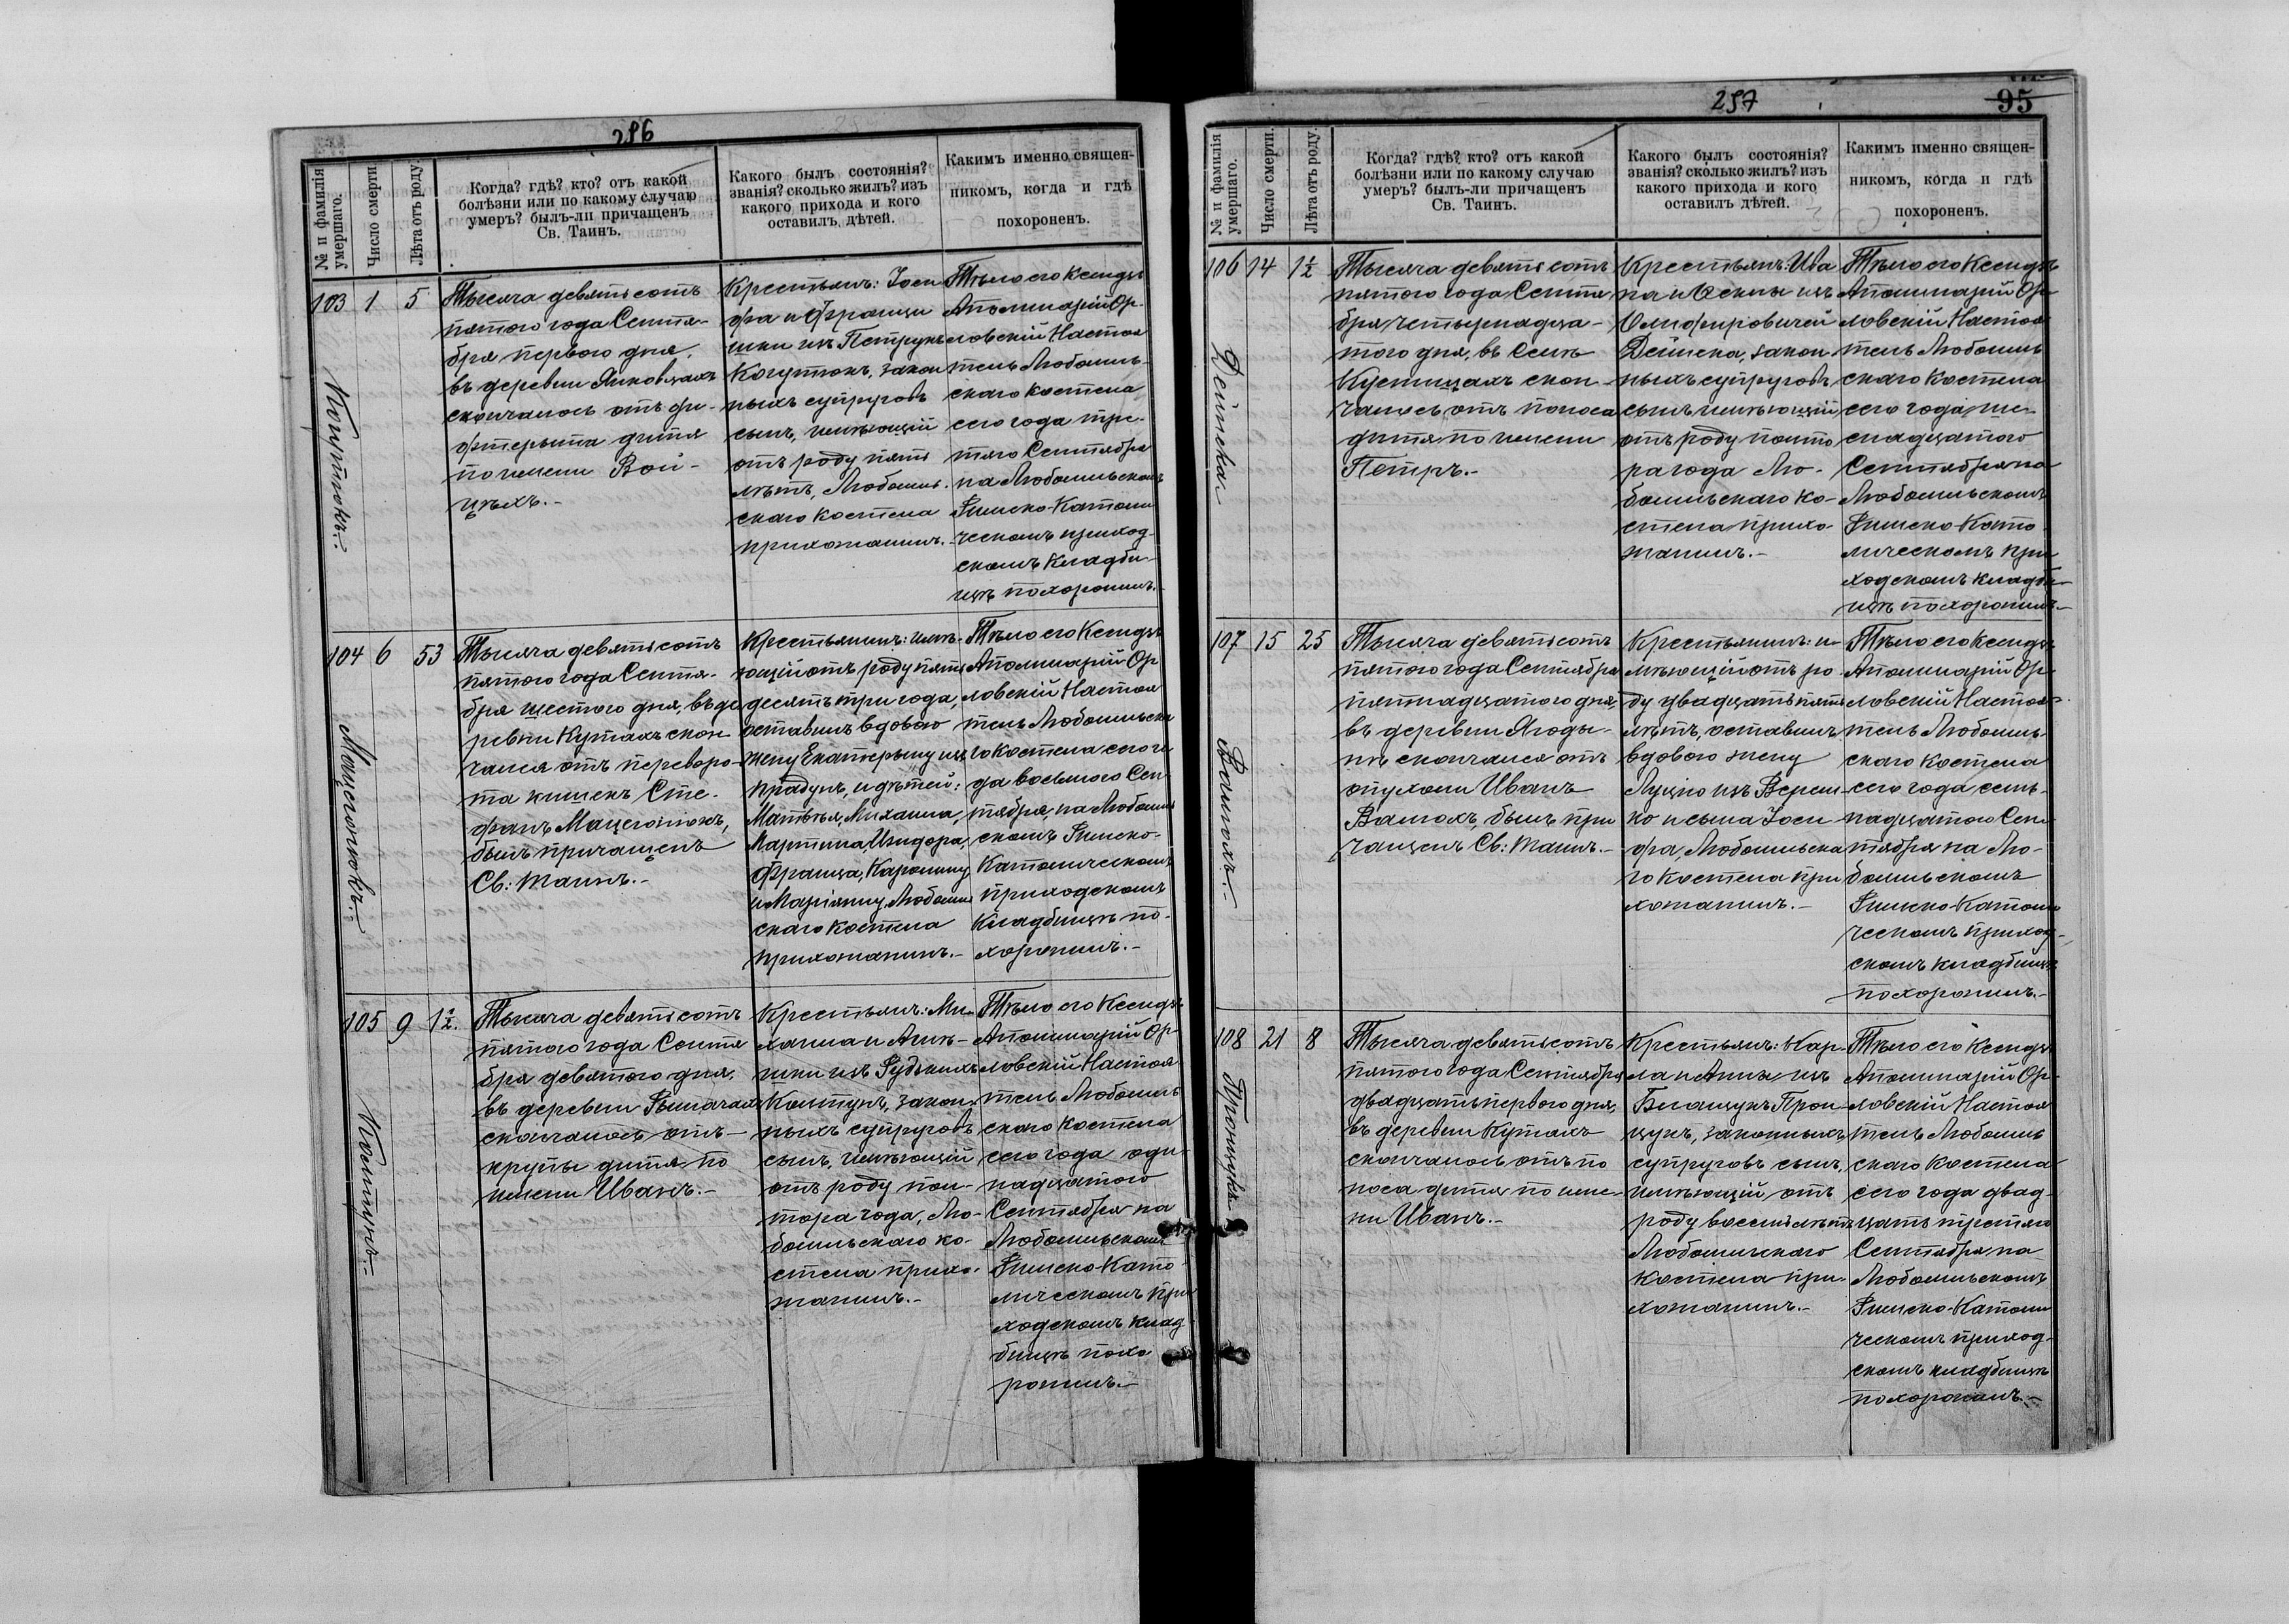 296
№ и фамилія умершаго.
Число смерти.
Лѣта отъ роду.
Когда? гдѣ? кто? отъ какой
болѣзни или по какому случаю
умеръ? былъ-ли причащенъ
Св. Таинъ.
Какого былъ состоянія?
званія? сколько жилъ? изъ
какого прихода и кого
оставилъ дѣтей.
Какимъ именно священ-
никомъ, когда и гдѣ
похороненъ.
103 1 5
Когутюкъ.
Тысяча девятьсотъ
пятого года Сентя-
бря первого дня,
въ деревни Янковцахъ
скончалось отъ ди-
фтерыта дитя
по имени Вой-
цѣхъ.-
Крестьянъ: Іоси
фа и Францы
шки изъ Петрукъ
Когутюкъ, закон
ныхъ супруговъ
сынъ, имѣющій
отъ роду пять
лѣтъ, Любомль-
скаго костела
прихожанинъ.-
Тѣло его Ксендзъ
Аполинарій Ор-
ловскій Настоя
тель Любомль-
скаго костела
сего года тре-
тяго Сентября
на Любомльскомъ
Римско-Католи
ческомъ приход-
скомъ кладби-
щѣ похоронилъ.-
104 6 53
Мацегонюкъ.-
Тысяча девятьсотъ
пятого года Сентя-
бря шестого дня, въ де
ревни Кутахъ скон
чался отъ переворо-
та кишекъ Сте-
фанъ Мацегонюкъ,
былъ причащенъ
Св: Таинъ.-
Крестьянинъ: имѣ-
ющій отъ роду пять
десятъ три года,
оставилъ вдовою
жену Екатерыну изъ
Прадунъ, и дѣтей:
Матвѣя, Михаила,
Мартина, Изидора,
Франца, Каролину
и Маріянну, Любомль
скаго костела
прихожанинъ.-
Тѣло его Ксендзъ
Аполинарій Ор
ловскій Настоя
тель Любомльска
го костела сего го
да восьмого Сен
тября, на Любомль
скомъ Римско-
Католическомъ
приходскомъ
кладбищѣ по-
хоронилъ.-
105 9 1½.
Колтунъ.-
Тысяча девятьсотъ
пятого года Сентя
бря девятого дня,
въ деревни Рымачахъ
скончалось отъ
крупы дитя по
имени Иванъ.-
Крестьянъ: Ми-
хаила и Агнѣ-
шки изъ Рудскихъ
Колтунъ, закон
ныхъ супруговъ
сынъ, имѣющій
отъ роду пол-
тора года, Лю-
бомльскаго ко-
стела прихо-
жанинъ.-
Тѣло его Ксендзъ
Аполинарій Ор-
ловскій Настоя
тель Любомль
скаго костела
сего года оди-
надцатого
Сентября на
Любомльскомъ
Римско-Като-
лическомъ при
ходскомъ клад
бищѣ похо
ронилъ.-
297
95
№ и фамилія умершаго.
Число смерти.
Лѣта отъ роду.
Когда? гдѣ? кто? отъ какой
болѣзни или по какому случаю
умеръ? былъ-ли причащенъ
Св. Таинъ.
Какого былъ состоянія?
званія? сколько жилъ? изъ
какого прихода и кого
оставилъ дѣтей.
Какимъ именно священ-
никомъ, когда и гдѣ
похороненъ.
106 14 1½
Дейнека
Тысяча девятьсотъ
пятого года Сентя
бря четырнадца-
того дня, въ селѣ
Кустицахъ скон-
чалось отъ поноса
дитя по имени
Петръ.-
Крестьянъ: Ива
на и Ѳеклы изъ
Олифировичей
Дейнека, закон
ныхъ супруговъ
сынъ имѣющій
отъ роду полто
ра года Лю-
бомльскаго ко-
стела прихо-
жанинъ.-
Тѣло его Ксендзъ
Аполинарій Ор-
ловскій Настоя
тель Любомль
скаго костела
сего года ше-
снадцатого
Сентября на
Любомльскомъ
Римско-Като
лическомъ при
ходскомъ кладби-
щѣ похоронилъ.-
107 15 25
Тысяча девятьсотъ
пятого года Сентября
пятнадцатого дня,
въ деревни Ягоды-
нѣ скончался отъ
опухоли Иванъ
былъ при
чащенъ Св: Таинъ.-
Крестьянинъ: и-
мѣющій отъ ро-
ду двадцать пять
лѣтъ, оставилъ
вдовою жену
Луцію изъ Верем-
ко и сына Іоси
фа, Любомльска
го костела при
хожанинъ.-
Тѣло его Ксендзъ
Аполинарій Ор-
ловскій Настоя-
тель Любомль-
скаго костела
сего года семь-
надцатого Сен-
тября на Лю-
бомльскомъ
Римско-Католи
ческомъ приход-
скомъ кладбищѣ
похоронилъ.-
108 21 8
Процукъ.-
Тысяча девятьсотъ
пятого года Сентября
двадцать первого дня,
въ деревни Кутахъ
скончалось отъ по
носа дитя по име-
ни Иванъ.-
Крестьянъ: Кар-
ла и Анны изъ
Бглащукъ Про-
цукъ, законныхъ
супруговъ сынъ,
имѣющій отъ
роду восемь лѣтъ
Любомльскаго
костела при-
хожанинъ.-
Тѣло его Ксендзъ
Аполинарій Ор-
ловскій Настоя
тель Любомль
скаго костела
сего года двад-
цать третяго
Сентября на
Любомльскомъ
Римско-Католи
ческомъ приход-
скомъ кладбищѣ
похоронилъ.-